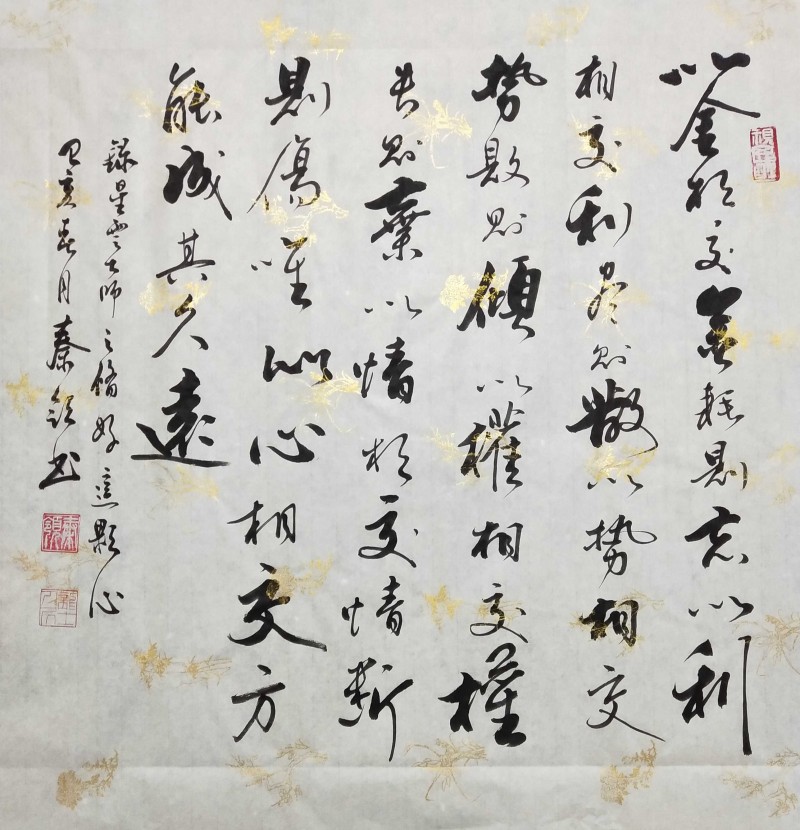 以金相交金耗則忘以利
相交利尽則散以势相交
势敗則傾以權相交權
失則棄以情相交情断
則傷唯以心相交方
能成其久遠
錄星云大师之修好這顆心
己亥春月秦领书
秦領